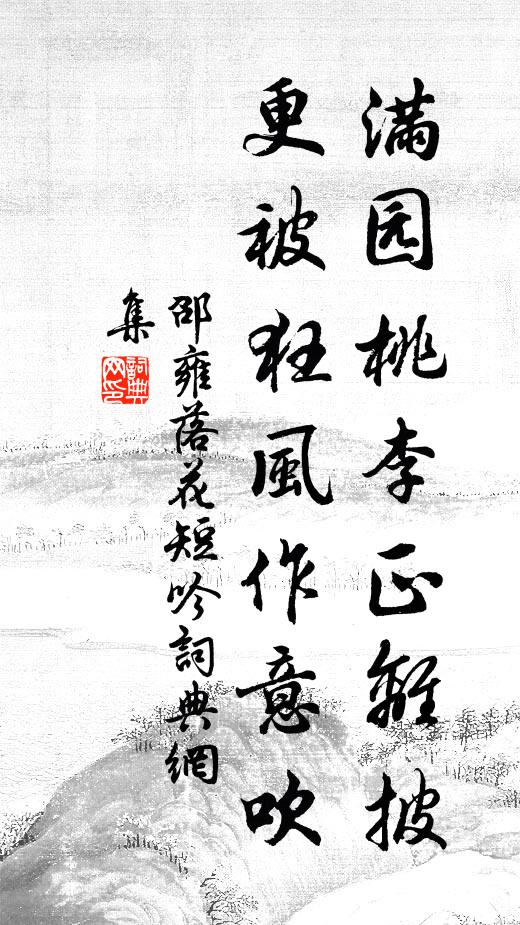 满园桃李正離披
更被狂風作意吹
邵雍落花短吟詞典網
集
詞典
网印